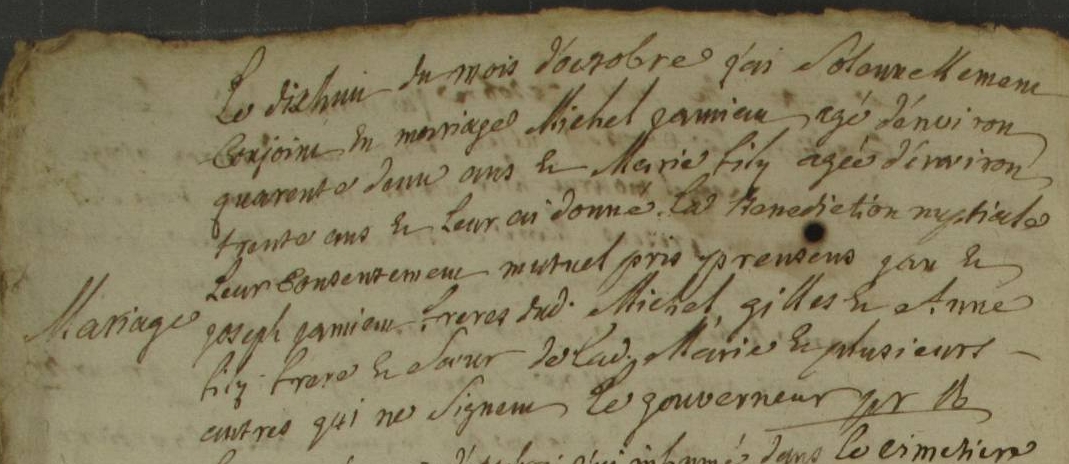 Le dixhui du mois d'octobre j'ai solennellement
Conjoint en mariage Michel jamieau agé d'environ
quarente deux ans et Marie tily agée d'environ
trente ans et leur ai donné la benediction nuptiale
leur consentement mutuel pris presens jan et
Mariage
joseph jamieau freres dud. Michel, gilles et Anne
tily frere et soeur de lad. Marie et plusieurs
autres qui ne signent Le gouverneur pr
j'ai inhumé dans le cimetiere